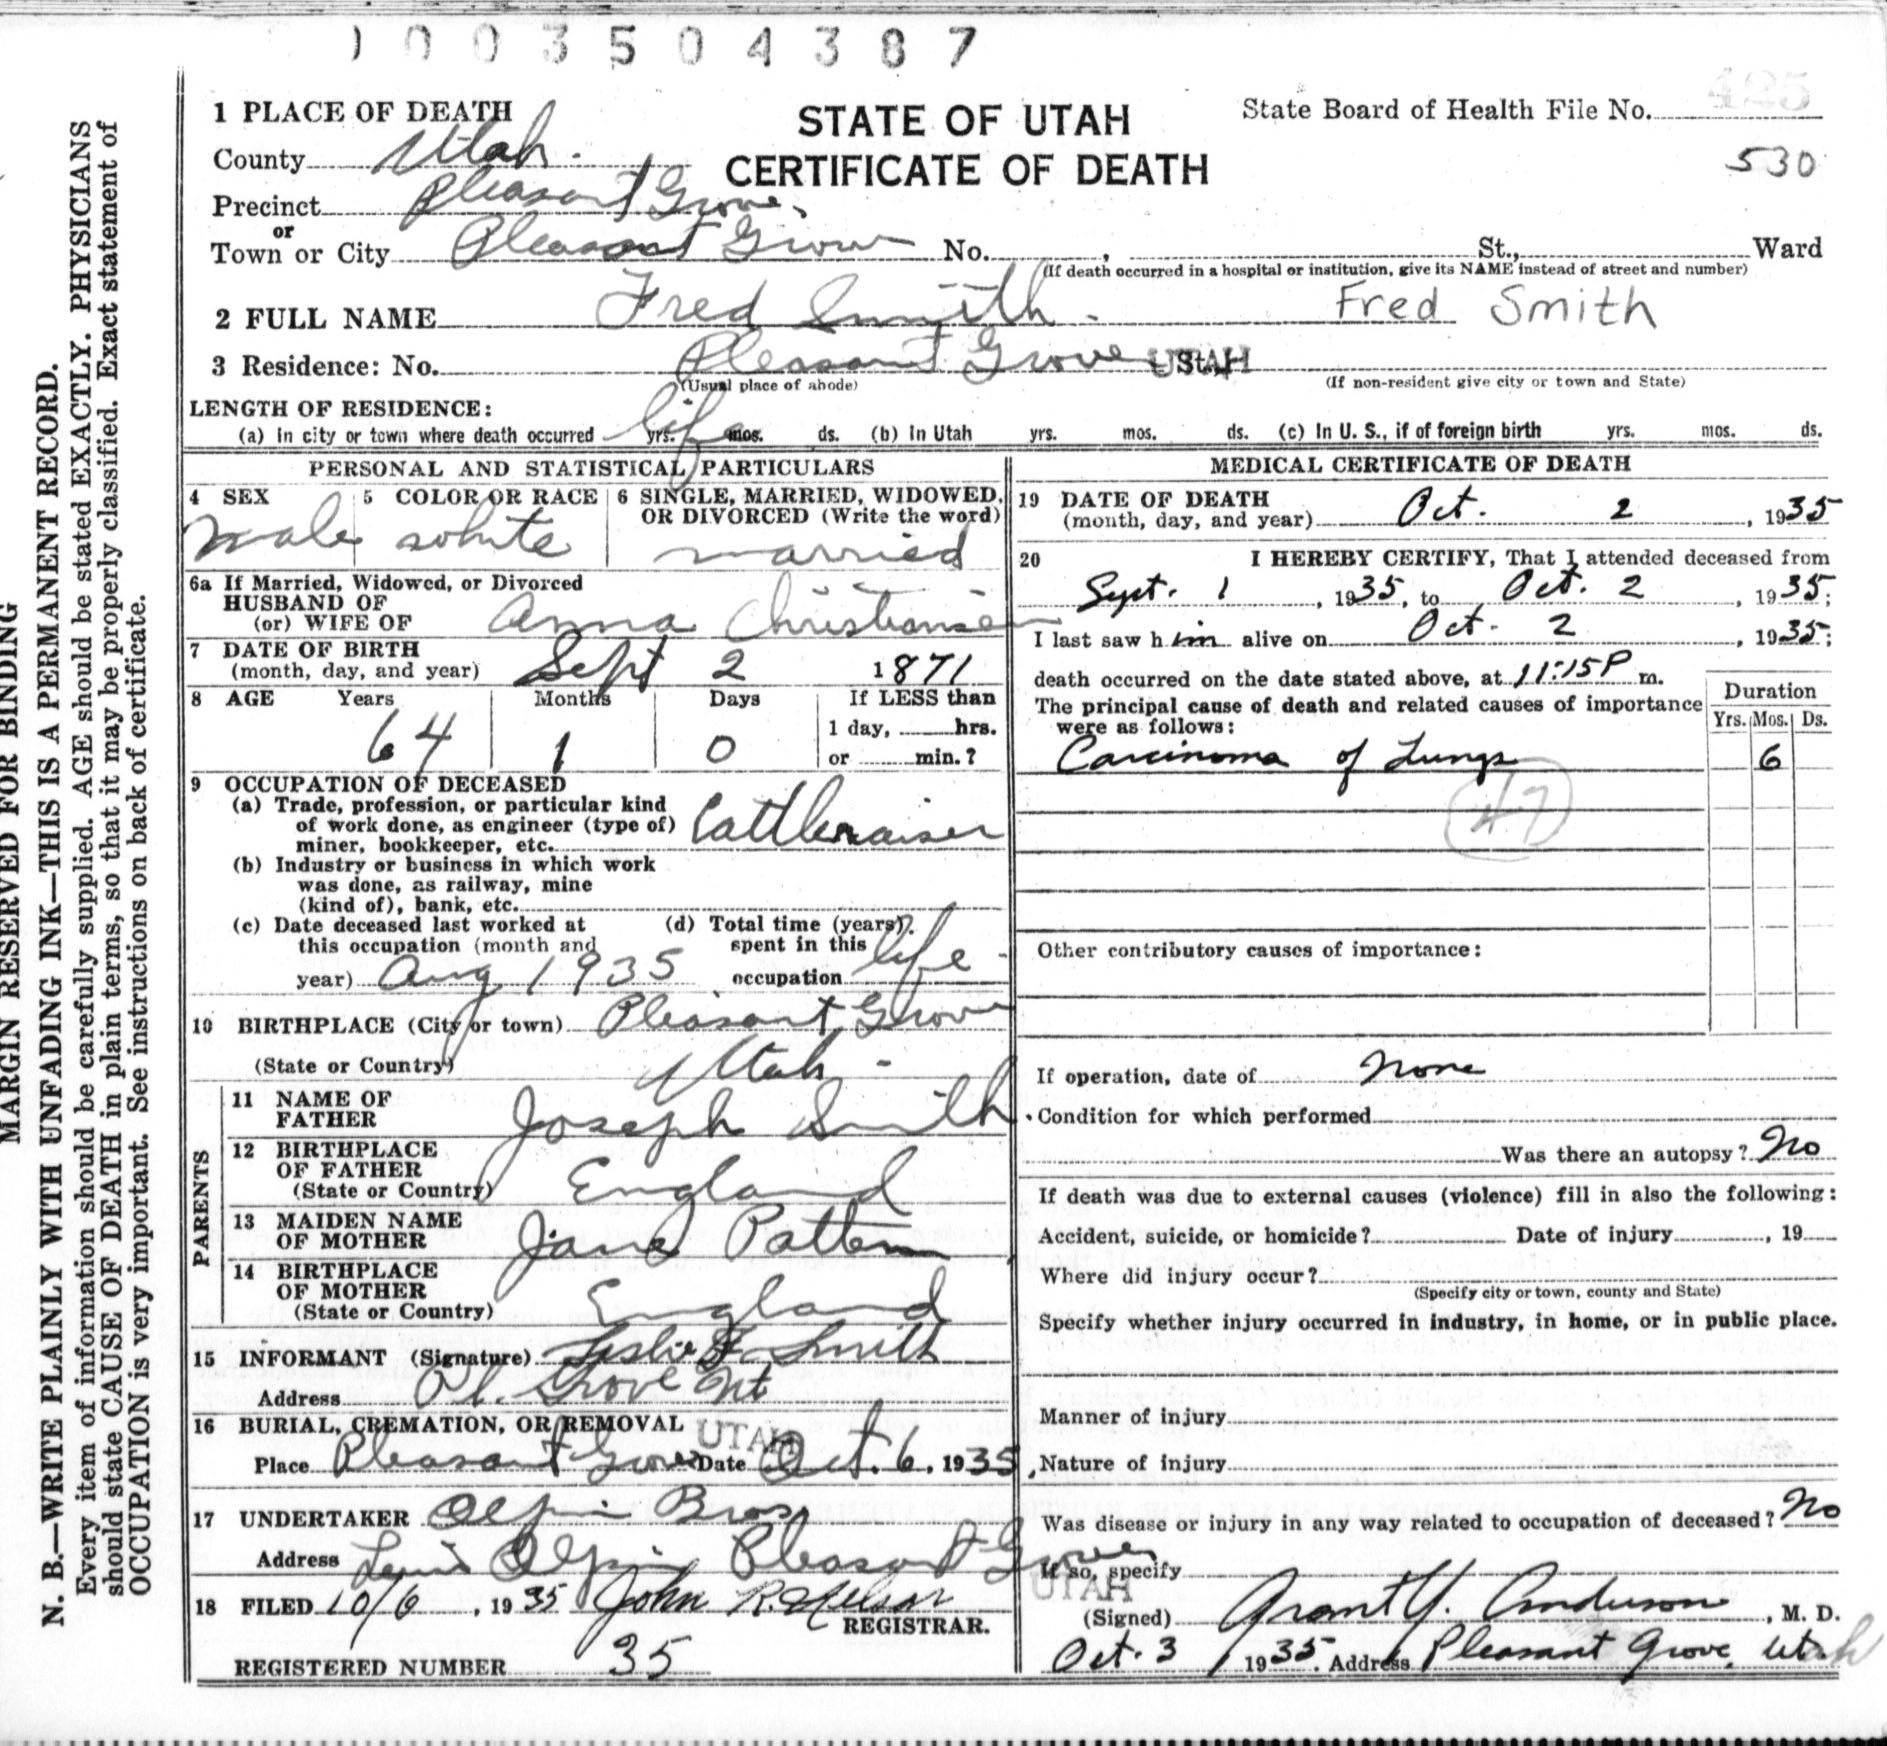 1003504387
425
530
MARGIN RESERVED FOR BINDING
N. B.—WRITE PLAINLY WITH UNFADING INK—THIS IS A PERMANENT RECORD.
Every item of information should be carefully supplied. AGE should be stated EXACTLY. PHYSICIANS
should state CAUSE OF DEATH in plain terms, so that it may be properly classified. Exact statement of
OCCUPATION is very important. See instructions on back of certificate.
STATE OF UTAH
CERTIFICATE OF DEATH
State Board of Health File No.
1 PLACE OF DEATH
County Utah.
Precinct Pleasant Grove.
or
Town or City Pleasant Grove No. , St., Ward
(If death occurred in a hospital or institution, give its NAME instead of street and number)
2 FULL NAME Fred Smith. Fred Smith
3 Residence: No. Pleasant Grove St., UTAH
(Usual place of abode) (If non-resident give city or town and State)
LENGTH OF RESIDENCE:
(a) In city or town where death occurred life yrs. mos. ds. (b) In Utah yrs. mos. ds. (c) In U. S., if of foreign birth yrs. mos. ds.
PERSONAL AND STATISTICAL PARTICULARS
4 SEX 5 COLOR OR RACE 6 SINGLE, MARRIED, WIDOWED,
OR DIVORCED (Write the word)
male white married
6a If Married, Widowed, or Divorced
HUSBAND OF
(or) WIFE OF Anna Christiansen
7 DATE OF BIRTH
(month, day, and year) Sept 2 1871
8 AGE Years Months Days If LESS than
1 day, hrs.
64 1 0 or min.?
9 OCCUPATION OF DECEASED
(a) Trade, profession, or particular kind
of work done, as engineer (type of)
miner, bookkeeper, etc. Cattleraiser
(b) Industry or business in which work
was done, as railway, mine
(kind of), bank, etc.
(c) Date deceased last worked at (d) Total time (years)
this occupation (month and spent in this
year) Aug 1935 occupation life
10 BIRTHPLACE (City or town) Pleasant Grove
(State or Country) Utah
PARENTS
11 NAME OF
FATHER Joseph Smith
12 BIRTHPLACE
OF FATHER
(State or Country) England
13 MAIDEN NAME
OF MOTHER Jane Patten
14 BIRTHPLACE
OF MOTHER
(State or Country) England
15 INFORMANT (Signature) Leslie F. Smith
Address Pl. Grove Ut
16 BURIAL, CREMATION, OR REMOVAL UTAH
Place Pleasant Grove Date Oct. 6, 1935
17 UNDERTAKER Olpin Bros.
Address Lewis Olpin Pleasant Grove UTAH
18 FILED 10/6, 1935 John R. Nelson
REGISTRAR.
REGISTERED NUMBER 35
MEDICAL CERTIFICATE OF DEATH
19 DATE OF DEATH
(month, day, and year) Oct. 2, 1935
20 I HEREBY CERTIFY, That I attended deceased from
Sept. 1, 1935, to Oct. 2, 1935;
I last saw h im alive on Oct. 2, 1935;
death occurred on the date stated above, at 11:15P m.
The principal cause of death and related causes of importance
were as follows:
Duration
Yrs. Mos. Ds.
Carcinoma of Lungs 6
47
Other contributory causes of importance:
If operation, date of None
Condition for which performed
Was there an autopsy? No
If death was due to external causes (violence) fill in also the following:
Accident, suicide, or homicide? Date of injury , 19
Where did injury occur?
(Specify city or town, county and State)
Specify whether injury occurred in industry, in home, or in public place.
Manner of injury
Nature of injury
Was disease or injury in any way related to occupation of deceased? No
If so, specify
(Signed) Grant Y. Anderson, M. D.
Oct. 3 1935. Address Pleasant Grove, Utah